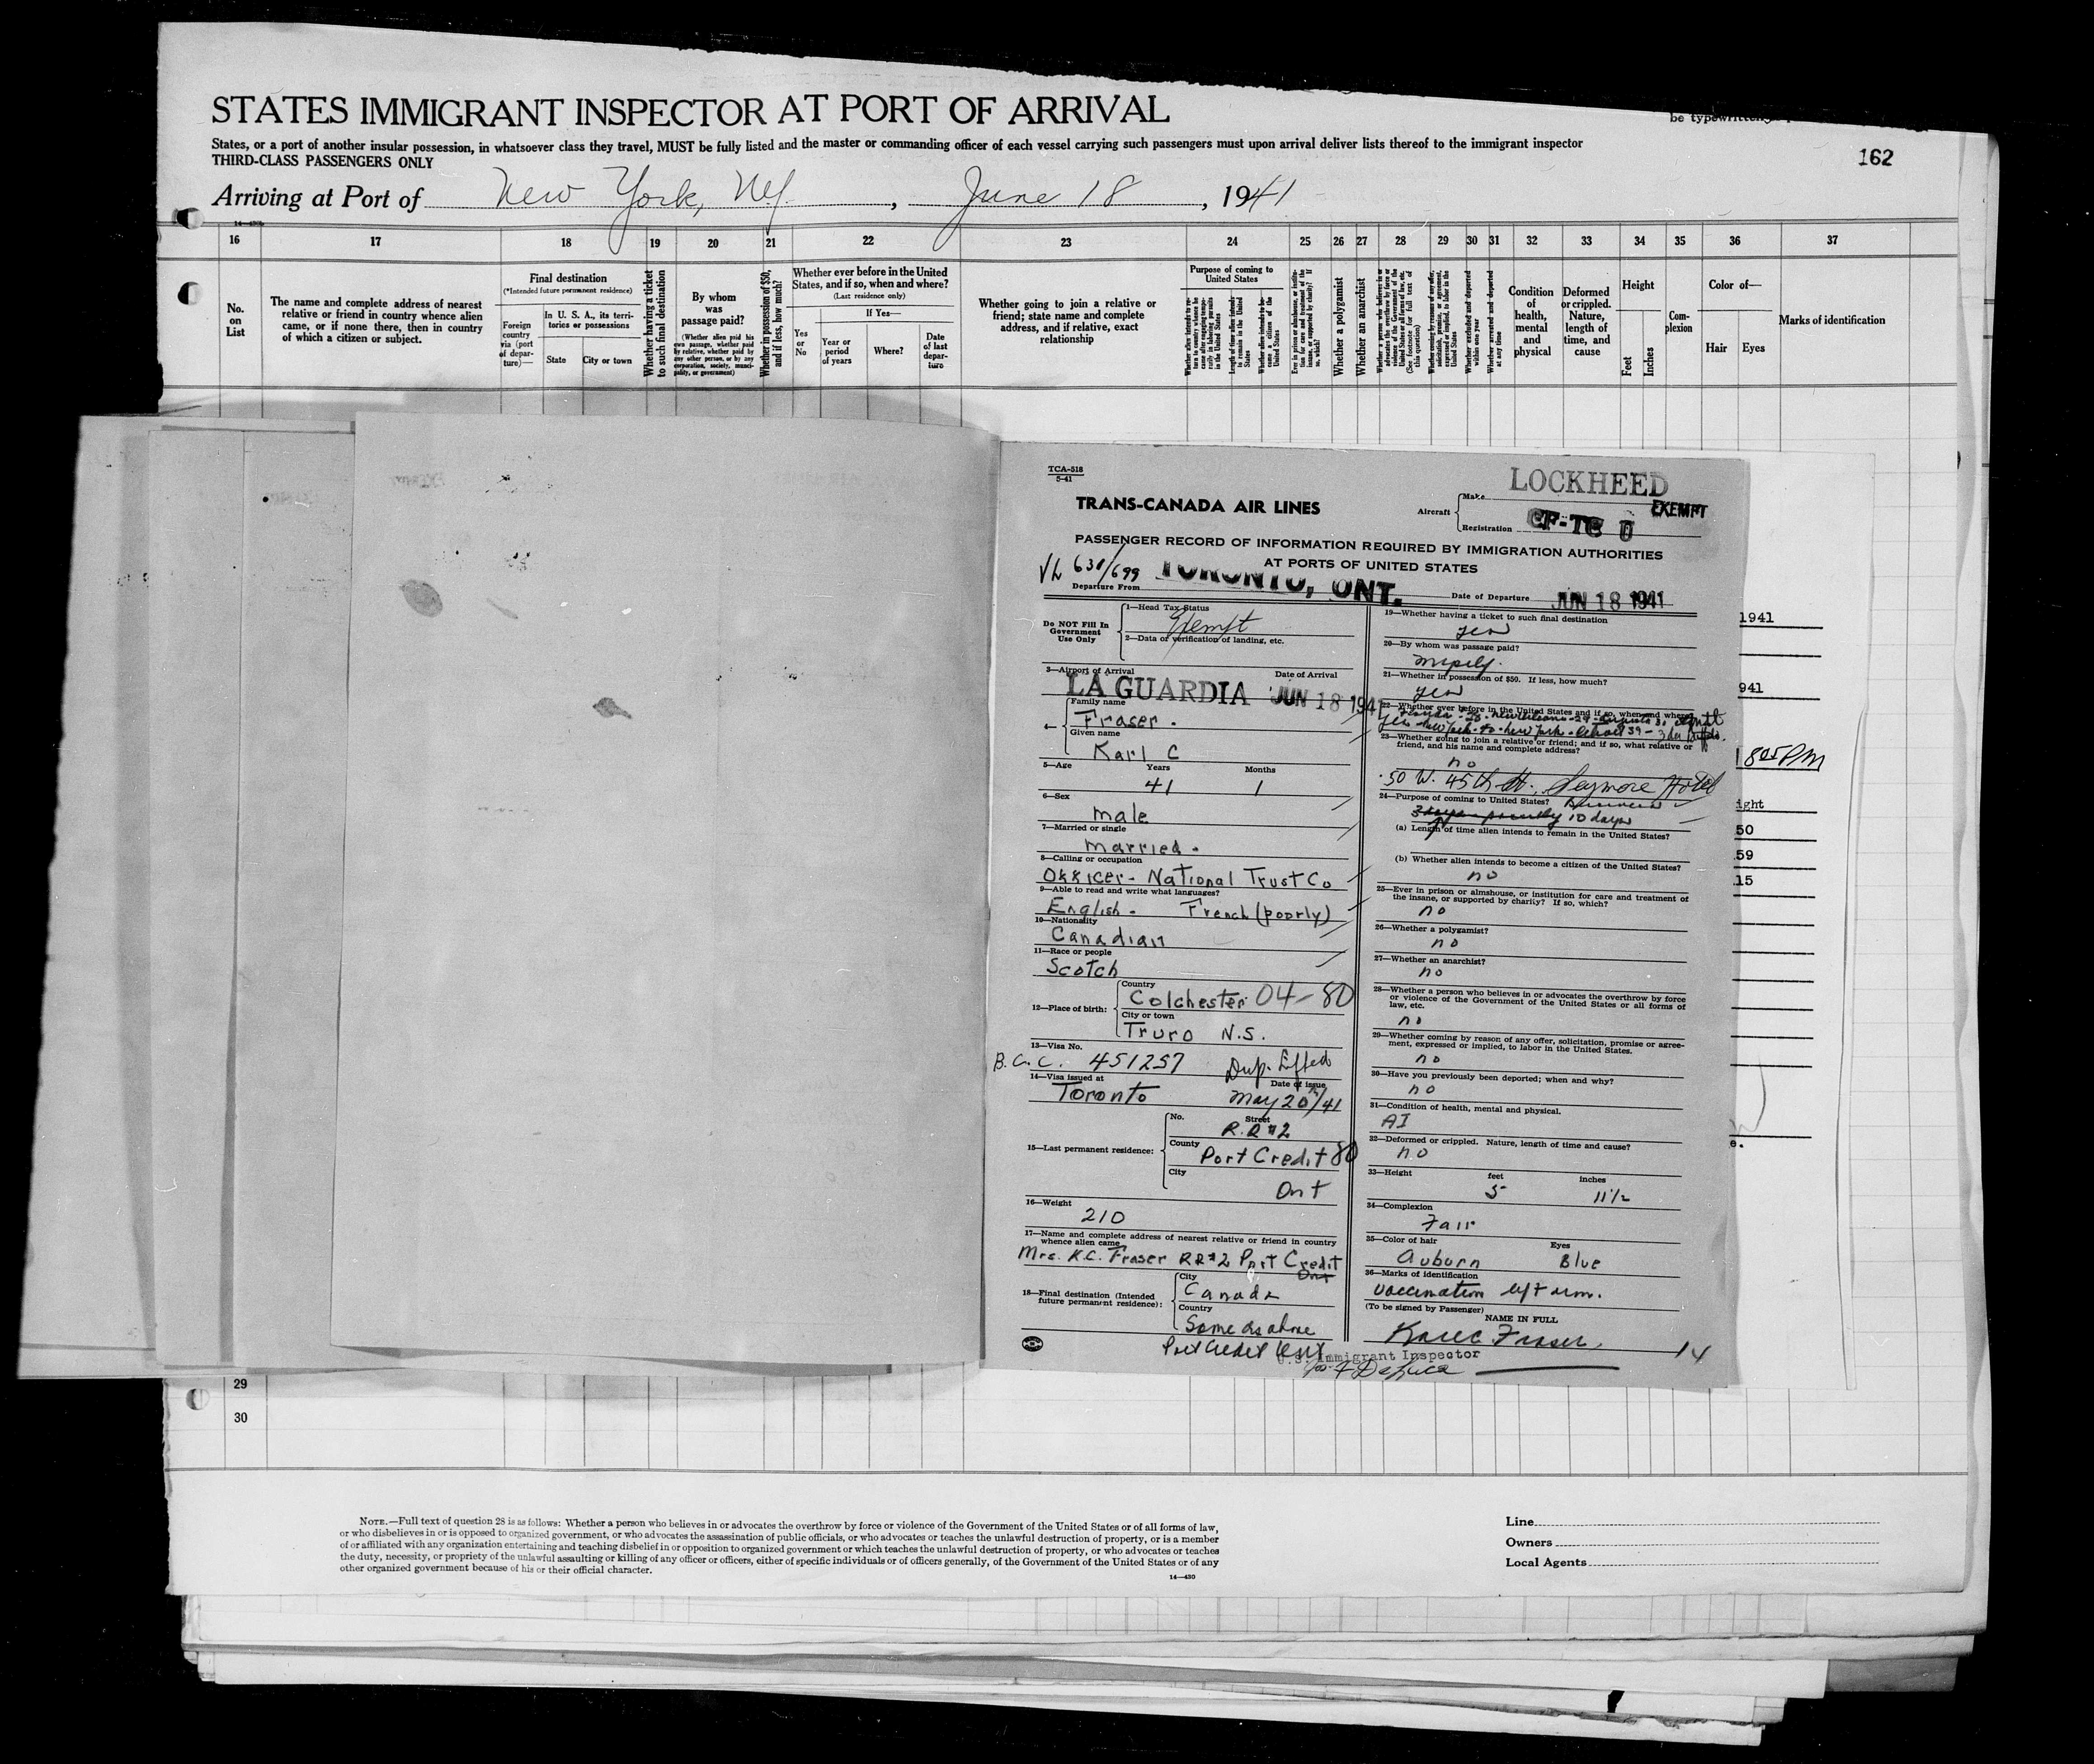 be typewritten
STATES IMMIGRANT INSPECTOR AT PORT OF ARRIVAL
States, or a port of another insular possession, in whatsoever class they travel, MUST be fully listed and the master or commanding officer of each vessel carrying such passengers must upon arrival deliver lists thereof to the immigrant inspector
THIRD-CLASS PASSENGERS ONLY
162
Arriving at Port of New York, NY. , June 18 , 1941
16 17 18 19 20 21 22 23 24 25 26 27 28 29 30 31 32 33 34 35 36 37
No. on List
The name and complete address of nearest relative or friend in country whence alien came, or if none there, then in country of which a citizen or subject.
Final destination
(*Intended future permanent residence)
Foreign country via (port of departure)—
In U. S. A., its territories or possessions
State
City or town
Whether having a ticket to such final destination
By whom was passage paid?
(Whether alien paid his own passage, whether paid by relative, whether paid by any other person, or by any corporation, society, municipality, or government)
Whether in possession of $50, and if less, how much?
Whether ever before in the United States, and if so, when and where?
(Last residence only)
If Yes—
Yes or No
Year or period of years
Where?
Date of last departure
Whether going to join a relative or friend; state name and complete address, and if relative, exact relationship
Purpose of coming to United States
Whether a polygamist
Whether an anarchist
Condition of health, mental and physical
Deformed or crippled. Nature, length of time, and cause
Height
Feet
Inches
Complexion
Color of—
Hair
Eyes
Marks of identification
TCA-518
5-41
TRANS-CANADA AIR LINES
Aircraft
Make LOCKHEED
EXEMPT
Registration CF-TC U
PASSENGER RECORD OF INFORMATION REQUIRED BY IMMIGRATION AUTHORITIES
AT PORTS OF UNITED STATES
630/699
Departure From TORONTO, ONT. Date of Departure JUN 18 1941
Do NOT Fill In Government Use Only
1—Head Tax Status
Exempt
2—Data of verification of landing, etc.
3—Airport of Arrival Date of Arrival
LA GUARDIA JUN 18 1941
Family name
Fraser.
Given name
Karl C
5—Age Years Months
41 1
6—Sex
male
7—Married or single
married.
8—Calling or occupation
Officer - National Trust Co
9—Able to read and write what languages?
English - French (poorly)
10—Nationality
Canadian
11—Race or people
Scotch
12—Place of birth:
Country
Colchester 04-80
City or town
Truro N.S.
13—Visa No.
B.C.C. 451257 Dup. Lifted
14—Visa issued at Date of issue
Toronto May 20/41
15—Last permanent residence:
No. Street
R.R #2
County
Port Credit 80
City
Ont
16—Weight
210
17—Name and complete address of nearest relative or friend in country whence alien came
Mrs. K.C. Fraser RR#2 Port Credit
Ont
18—Final destination (Intended future permanent residence):
City
Canada
Country
Same as above
Port Credit Ont
19—Whether having a ticket to such final destination
yes
20—By whom was passage paid?
myself.
21—Whether in possession of $50. If less, how much?
yes
22—Whether ever before in the United States and if so, when and where?
23—Whether going to join a relative or friend; and if so, what relative or friend, and his name and complete address?
no
50 W. 45th St., Seymore Hotel
24—Purpose of coming to United States?
10 days
(a) Length of time alien intends to remain in the United States?
(b) Whether alien intends to become a citizen of the United States?
no
25—Ever in prison or almshouse, or institution for care and treatment of the insane, or supported by charity? If so, which?
no
26—Whether a polygamist?
no
27—Whether an anarchist?
no
28—Whether a person who believes in or advocates the overthrow by force or violence of the Government of the United States or all forms of law, etc.
no
29—Whether coming by reason of any offer, solicitation, promise or agreement, expressed or implied, to labor in the United States.
no
30—Have you previously been deported; when and why?
no
31—Condition of health, mental and physical.
A1
32—Deformed or crippled. Nature, length of time and cause?
no
33—Height feet inches
5 11½
34—Complexion
Fair
35—Color of hair Eyes
Auburn Blue
36—Marks of identification
vaccination left arm.
(To be signed by Passenger)
NAME IN FULL
Karl C Fraser
14
U.S. Immigrant Inspector
1941
941
805 PM
ight
50
59
15
e.
29
30
NOTE.—Full text of question 28 is as follows: Whether a person who believes in or advocates the overthrow by force or violence of the Government of the United States or of all forms of law,
or who disbelieves in or is opposed to organized government, or who advocates the assassination of public officials, or who advocates or teaches the unlawful destruction of property, or is a member
of or affiliated with any organization entertaining and teaching disbelief in or opposition to organized government or which teaches the unlawful destruction of property, or who advocates or teaches
the duty, necessity, or propriety of the unlawful assaulting or killing of any officer or officers, either of specific individuals or of officers generally, of the Government of the United States or of any
other organized government because of his or their official character.
14—430
Line
Owners
Local Agents